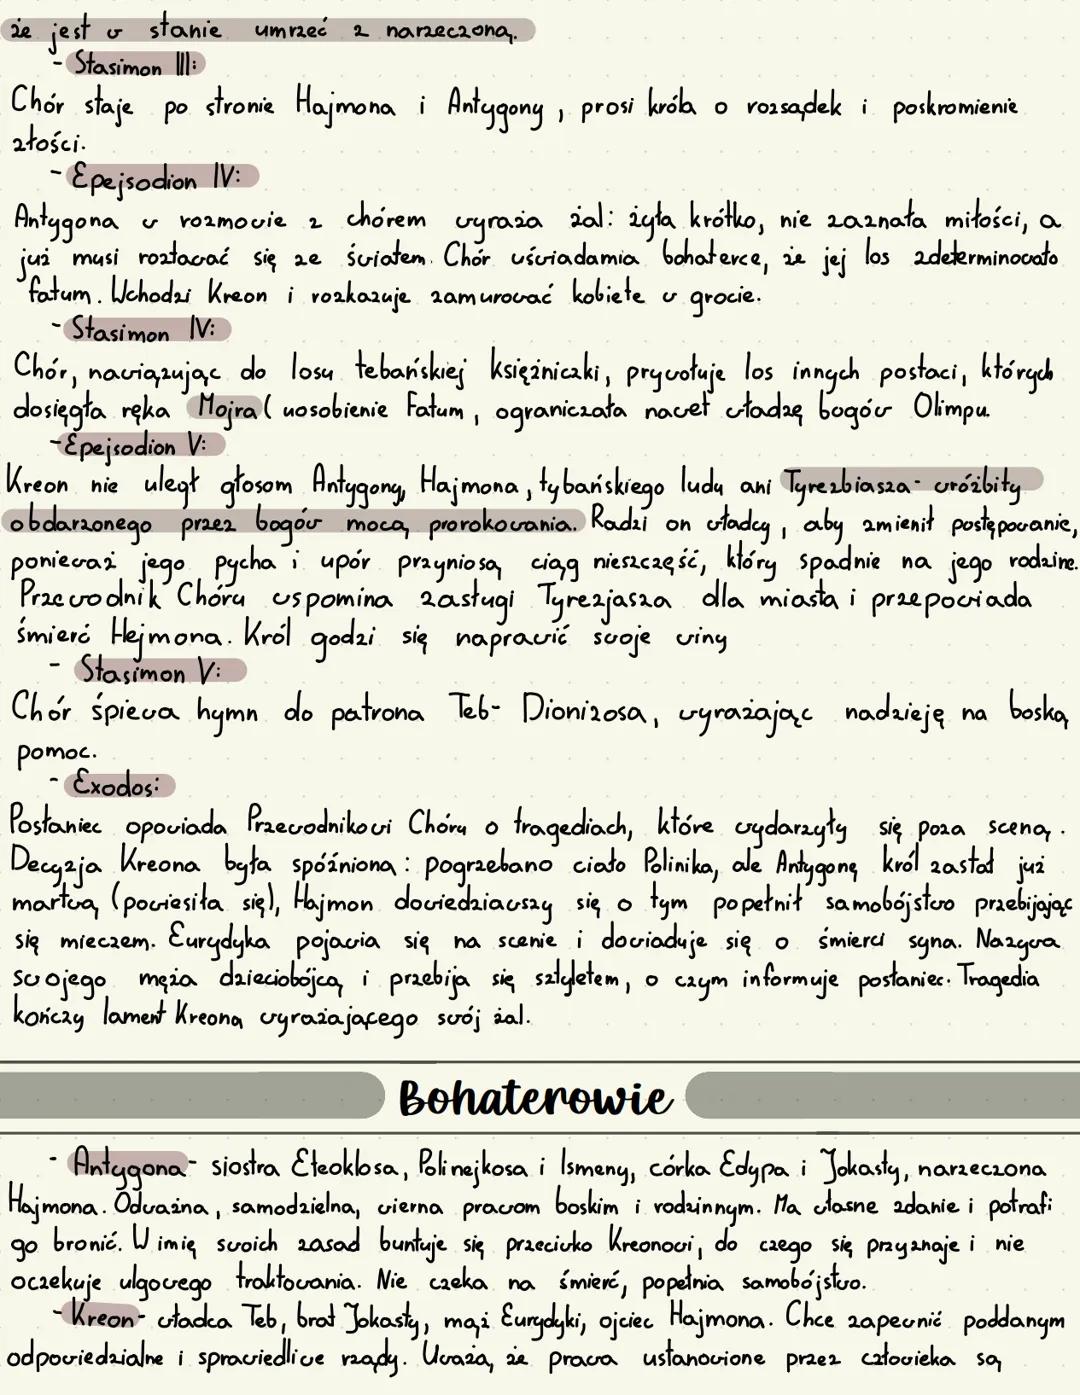 że jest w stanie umrzeć z narzeczoną.
- Stasimon III:
Chór staje po stronie Hajmona i Antygony, prosi króla o rozsądek i poskromienie
złości.
- Epejsodion IV:
Antygona w rozmowie z chórem wyraża żal: żyła krótko, nie zaznała miłości, a
już musi roztawać się ze światem. Chór uświadamia bohaterce, że jej los zdeterminowało
fatum. Wchodzi Kreon i rozkazuje zamurować kobietę w grocie.
- Stasimon IV:
Chór, nawiązując do losu tebańskiej księżniczki, prywołuje los innych postaci, których
dosięgła ręka Mojra (uosobienie Fatum, ograniczała nawet władzę bogów Olimpu.
- Epejsodion V:
Kreon nie uległ głosom Antygony, Hajmona, tybańskiego ludu ani Tyrezbiasza - wróżbity
obdarzonego przez bogów mocą prorokowania. Radzi on władcy, aby zmienił postępowanie,
ponieważ jego pycha i upór przyniosą ciąg nieszczęść, który spadnie na jego rodzine.
Przewodnik Chóru wspomina zasługi Tyrezjasza dla miasta i przepowiada
śmierć Hejmona. Król godzi się naprawić swoje winy
- Stasimon V:
Chór śpiewa hymn do patrona Teb- Dionizosa, wyrażając nadzieję na boską
pomoc.
- Exodos:
Posłaniec opowiada Przewodnikowi Chóru o tragediach, które wydarzyły się poza sceną.
Decyzja Kreona była spóźniona: pogrzebano ciało Polinika, ale Antygonę król zastał już
martwą (powiesiła się), Hajmon dowiedziawszy się o tym popełnił samobójstwo przebijając
się mieczem. Eurydyka pojawia się na scenie i dowiaduje się o śmierci syna. Nazywa
swojego męża dzieciobójcą i przebija się sztyletem, o czym informuje posłaniec. Tragedia
kończy lament Kreona wyrażającego swój żal.
Bohaterowie
- Antygona- siostra Eteoklosa, Polinejkosa i Ismeny, córka Edypa i Jokasty, narzeczona
Hajmona. Odważna, samodzielna, wierna prawom boskim i rodzinnym. Ma własne zdanie i potrafi
go bronić. W imię swoich zasad buntuje się przeciwko Kreonowi, do czego się przyznaje i nie
oczekuje ulgowego traktowania. Nie czeka na śmierć, popełnia samobójstwo.
- Kreon- władca Teb, brat Jokasty, mąż Eurydyki, ojciec Hajmona. Chce zapewnić poddanym
odpowiedzialne i sprawiedliwe rządy. Uważa, że prawa ustanowione przez człowieka są